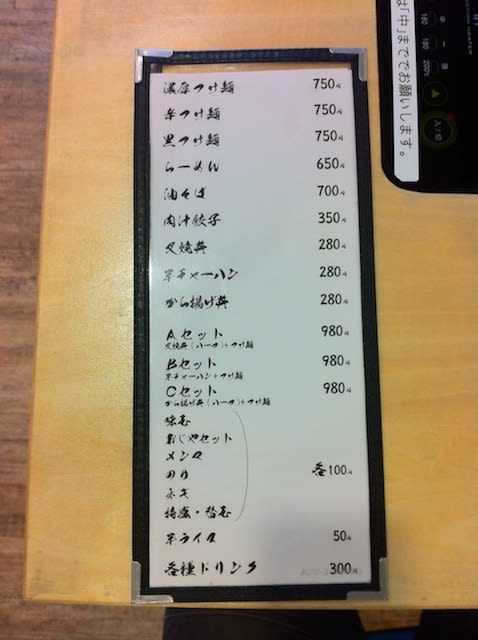 濃厚つけ麺 750円
辛つけ麺 750円
黒つけ麺 750円
らーめん 650円
油そば 700円
肉汁餃子 350円
叉焼丼 280円
半チャーハン 280円
から揚げ丼 280円
Aセット 980円
叉焼丼(ハーフ)+つけ麺
Bセット 980円
半チャーハン+つけ麺
Cセット 980円
から揚げ丼(ハーフ)+つけ麺
味玉
おじやセット
メンマ
のり 各100円
ネギ
特盛・替玉
半ライス 50円
各種ドリンク 300円
は「中」まででお願いします。
160
180
200
入/切